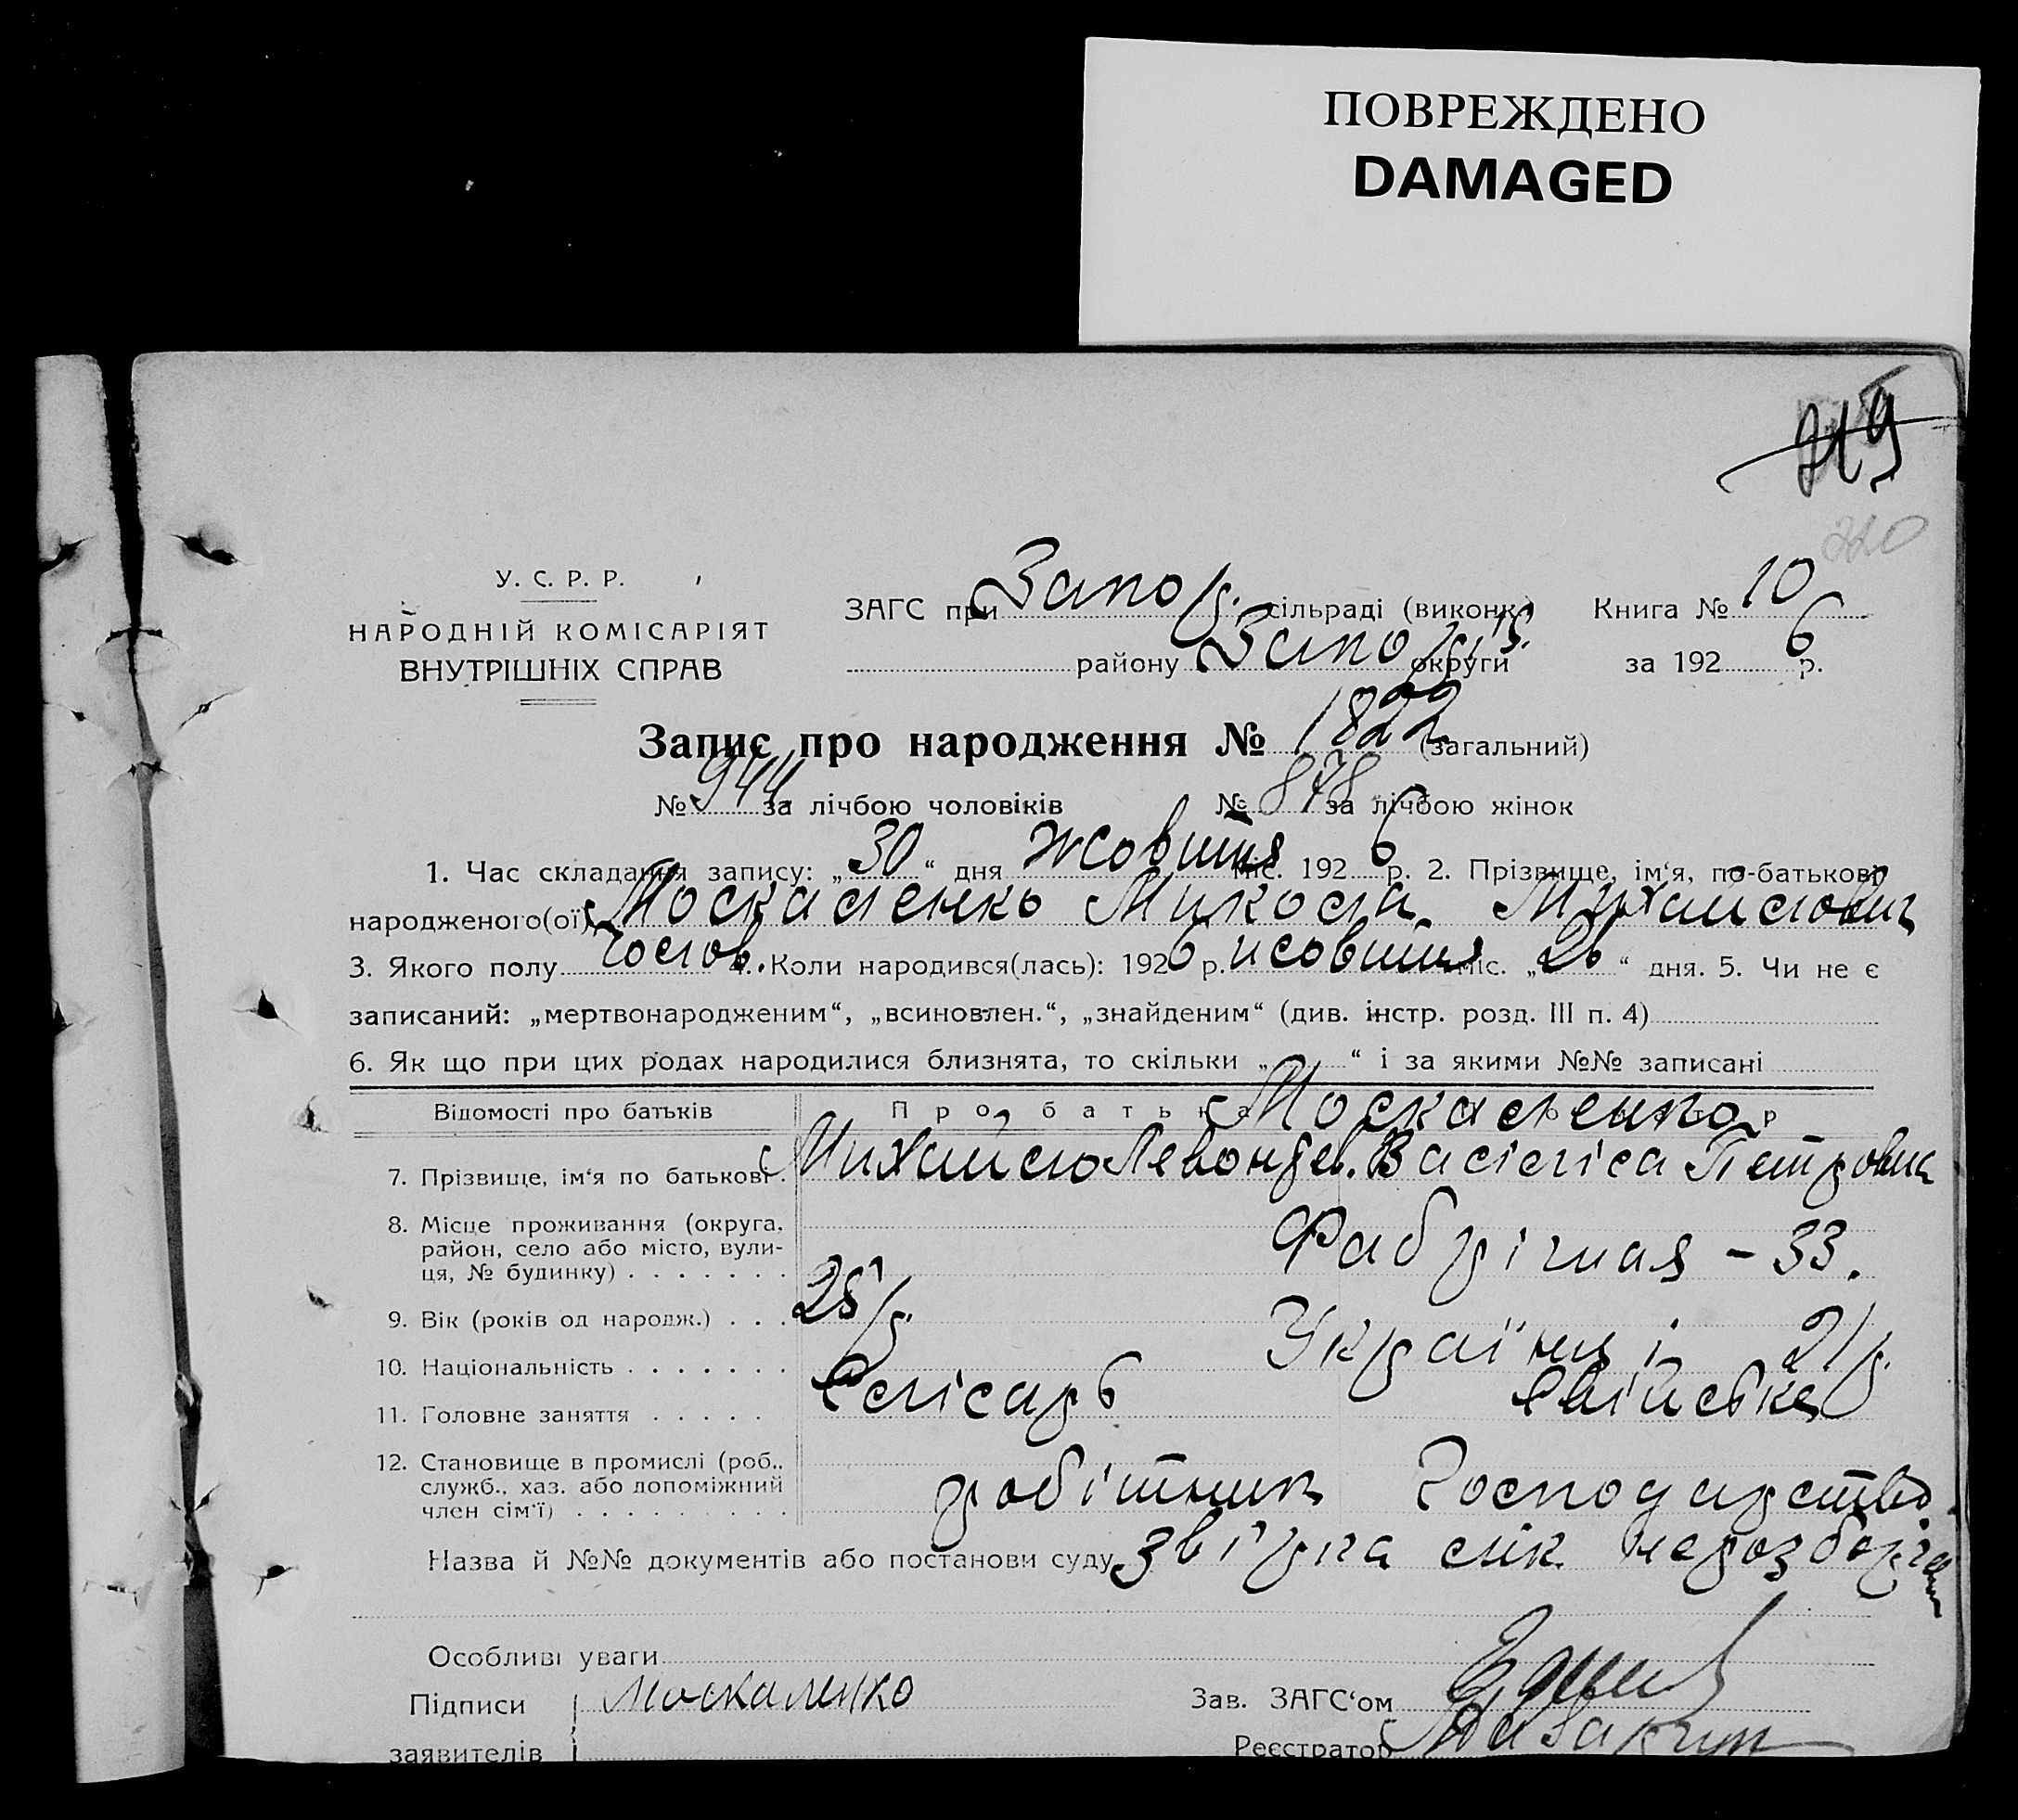 ПОВРЕЖДЕНО
DAMAGED
219
220
У. С. Р. Р.
НАРОДНІЙ КОМІСАРІЯТ
ВНУТРІШНІХ СПРАВ
ЗАГС при Запор. сільраді (виконк.) Книга № 10
району Запоріз. округи за 1926 р.
Запис про народження № 1822 (загальний)
№ 944 за лічбою чоловіків № 878 за лічбою жінок
1. Час складання запису: „30“ дня жовтня міс. 1926 р. 2. Прізвище, ім‘я, по-батькові
народженого(ої) Москаленко Микола Михайлович
3. Якого полу чолов. 4. Коли народився(лась): 1926 р. жовтня міс. „26“ дня. 5. Чи не є
записаний: „мертвонародженим“, „всиновлен.“, „знайденим“ (див. інстр. розд. III п. 4)
6. Як що при цих родах народилися близнята, то скільки „ “ і за якими №№ записані
Відомості про батьків Про батька Москаленко
7. Прізвище, ім‘я по батькові. Михайло Левонтев. Васіліса Петровна
8. Місце проживання (округа,
район, село або місто, вули-
ця, № будинку) . . . . . . . Фабрічная - 33.
9. Вік (років од народж.) . . . 25 р. 21 р.
10. Національність . . . . . . . Українці
11. Головне заняття . . . . . Слісарь свійське
12. Становище в промислі (роб.,
служб., хаз. або допоміжний
член сім‘ї) . . . . . . . . . робітник господарство.
Назва й №№ документів або постанови суду звірка лік.
Особливі уваги
Підписи Москаленко Зав. ЗАГС‘ом
заявителів Реєстратор